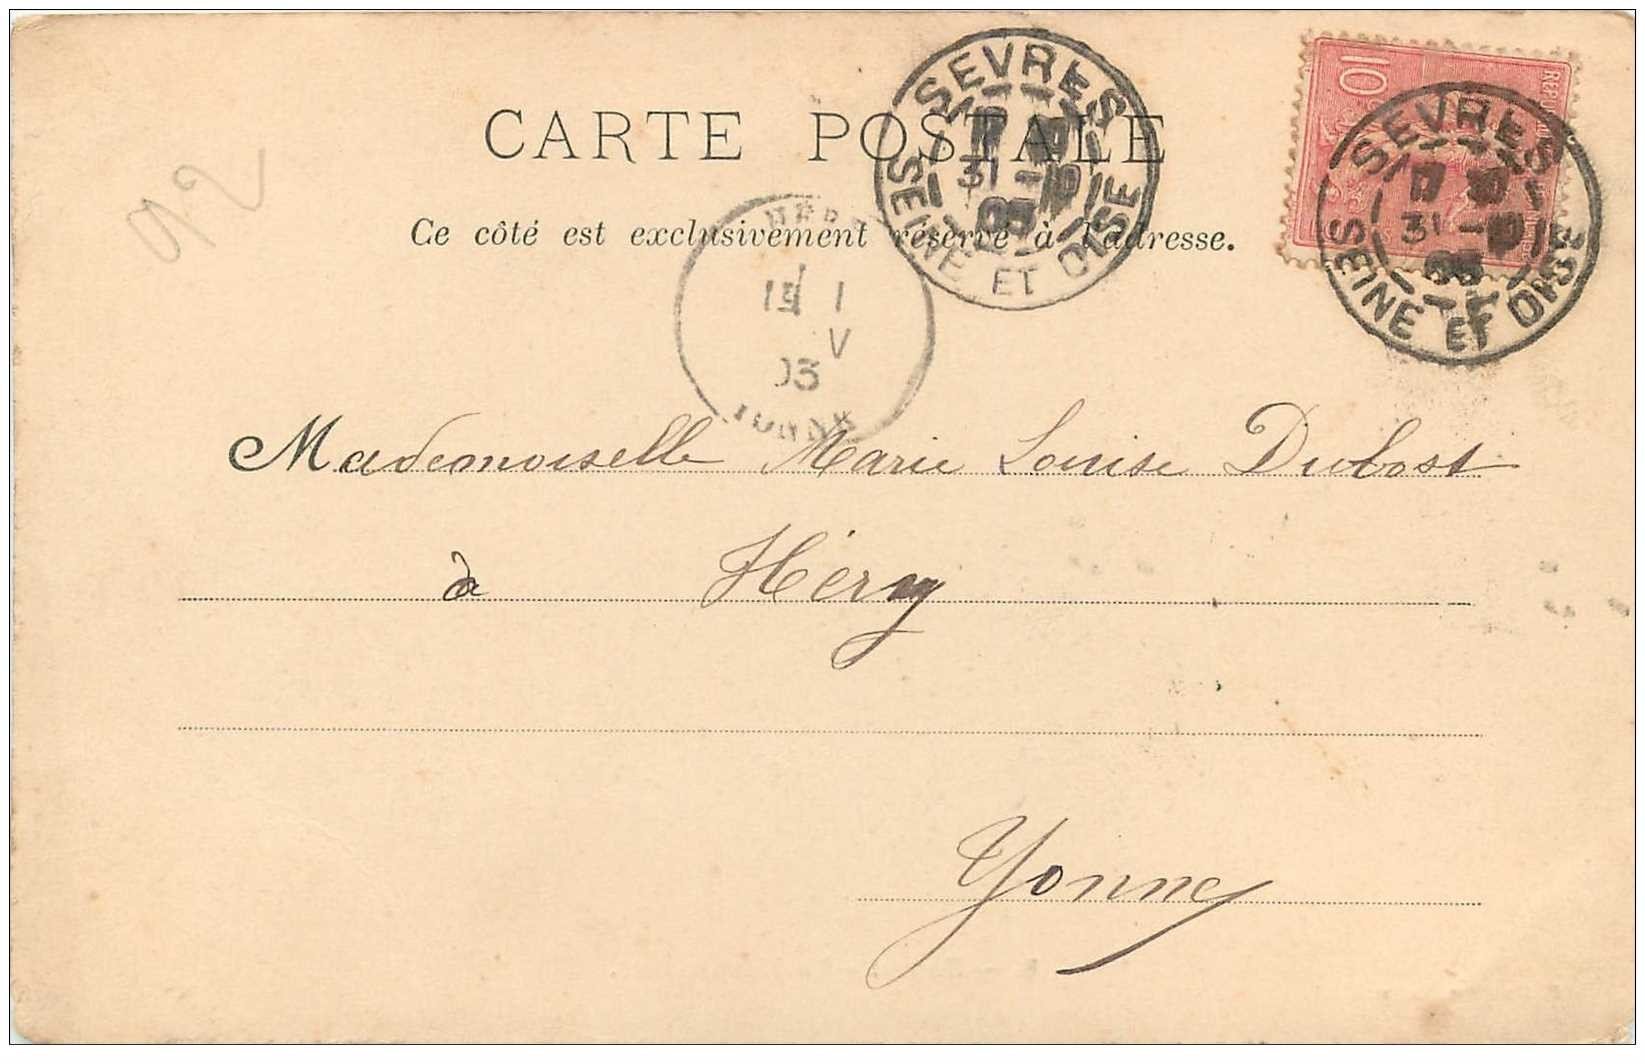 92
CARTE POSTALE
Ce côté est exclusivement réservé à l'adresse.
SEVRES
31
03
SEINE ET OISE
10
SEVRES
31
03
SEINE ET OISE
HÉRY
1
V
03
YONNE
Mademoiselle Marie Louise Dubost
à Héry
Yonne